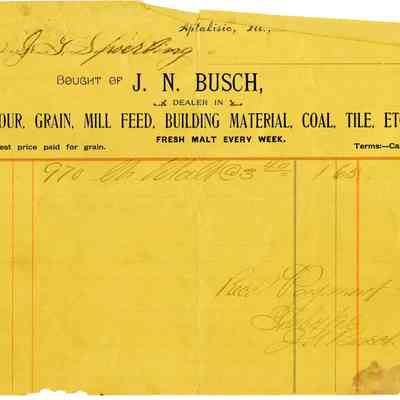 Aptakisic, Ill.,
J. G. Sperling
BOUGHT OF J. N. BUSCH,
DEALER IN
OUR, GRAIN, MILL FEED, BUILDING MATERIAL, COAL, TILE, ET
FRESH MALT EVERY WEEK.
est price paid for grain. Terms:—Ca
970 Malt @ 3 40 1 65
Rec'd Payment
J N Busch